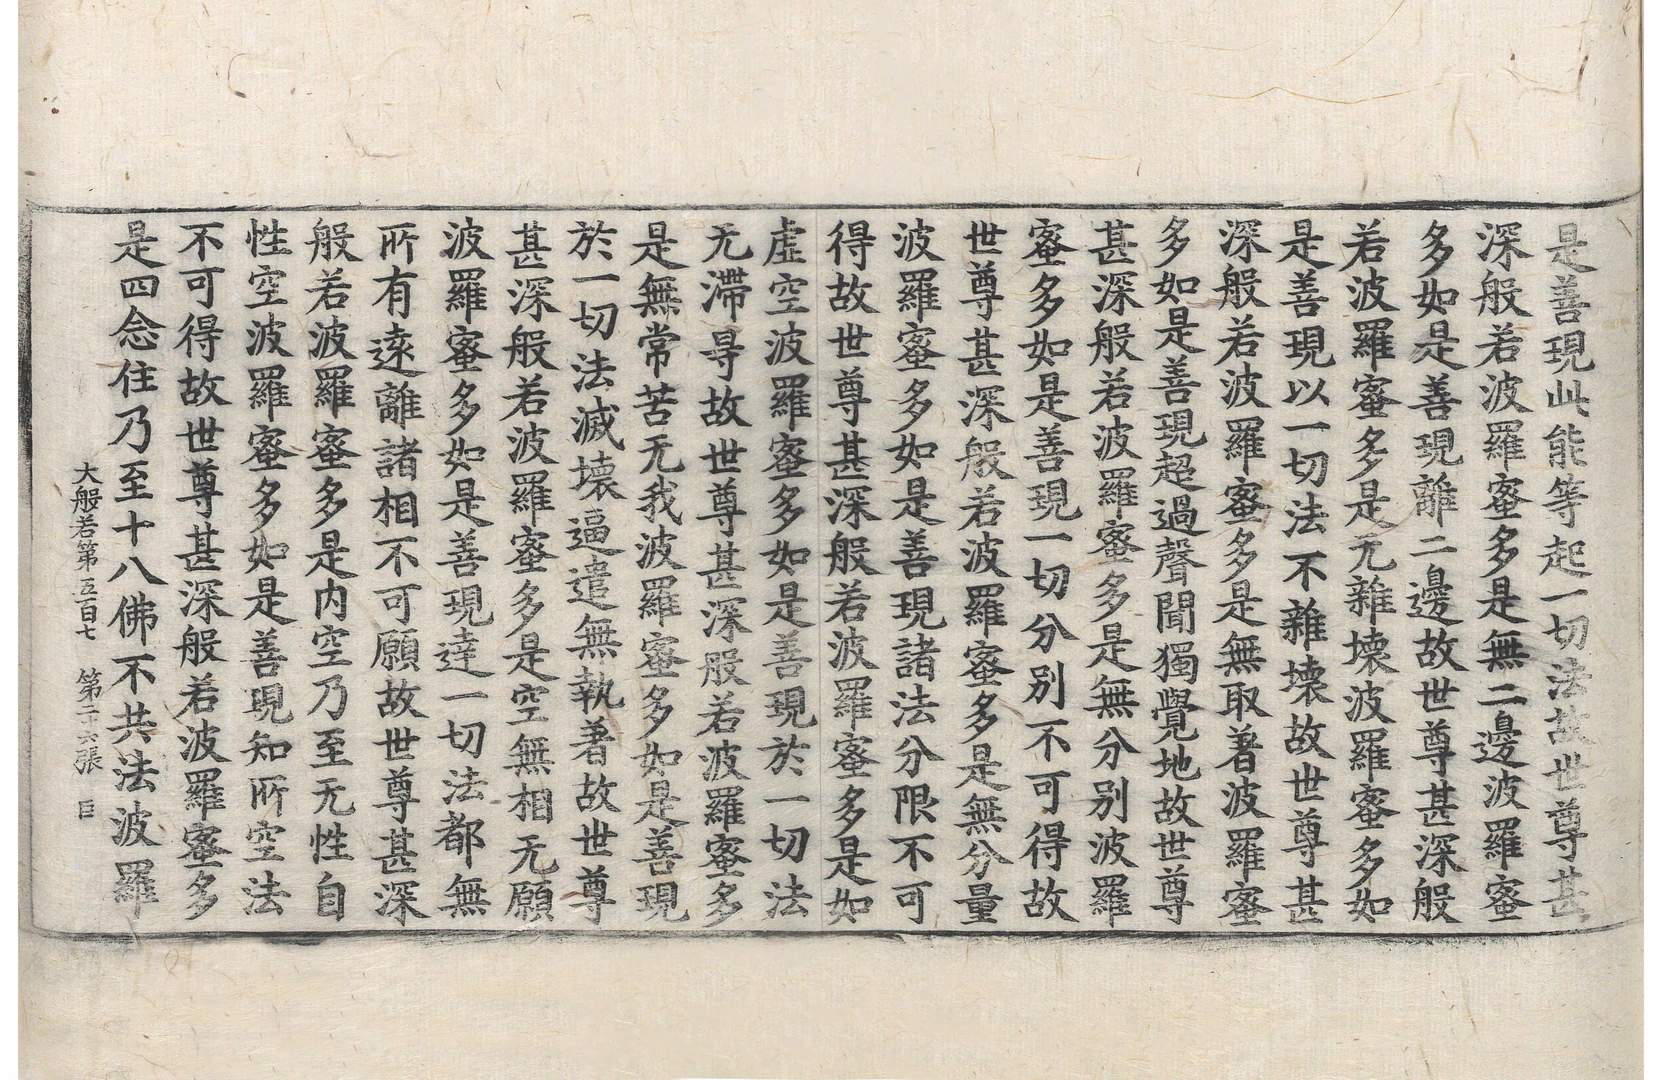 是善現此能等起一切法故世尊甚
深般若波羅蜜多是無二邊波羅蜜
多如是善現離二邊故世尊甚深般
若波羅蜜多是无雜壞波羅蜜多如
是善現以一切法不雜壞故世尊甚
深般若波羅蜜多是無取著波羅蜜
多如是善現超過聲聞獨覺地故世尊
甚深般若波羅蜜多是無分別波羅
蜜多如是善現一切分別不可得故
世尊甚深般若波羅蜜多是無分量
波羅蜜多如是善現諸法分限不可
得故世尊甚深般若波羅蜜多是如
虛空波羅蜜多如是善現於一切法
无滯㝵故世尊甚深般若波羅蜜多
是無常苦无我波羅蜜多如是善現
於一切法滅壞逼遣無執著故世尊
甚深般若波羅蜜多是空無相无願
波羅蜜多如是善現達一切法都無
所有遠離諸相不可願故世尊甚深
般若波羅蜜多是內空乃至无性自
性空波羅蜜多如是善現知所空法
不可得故世尊甚深般若波羅蜜多
是四念住乃至十八佛不共法波羅
大般若第五百七 第二十六張 巨